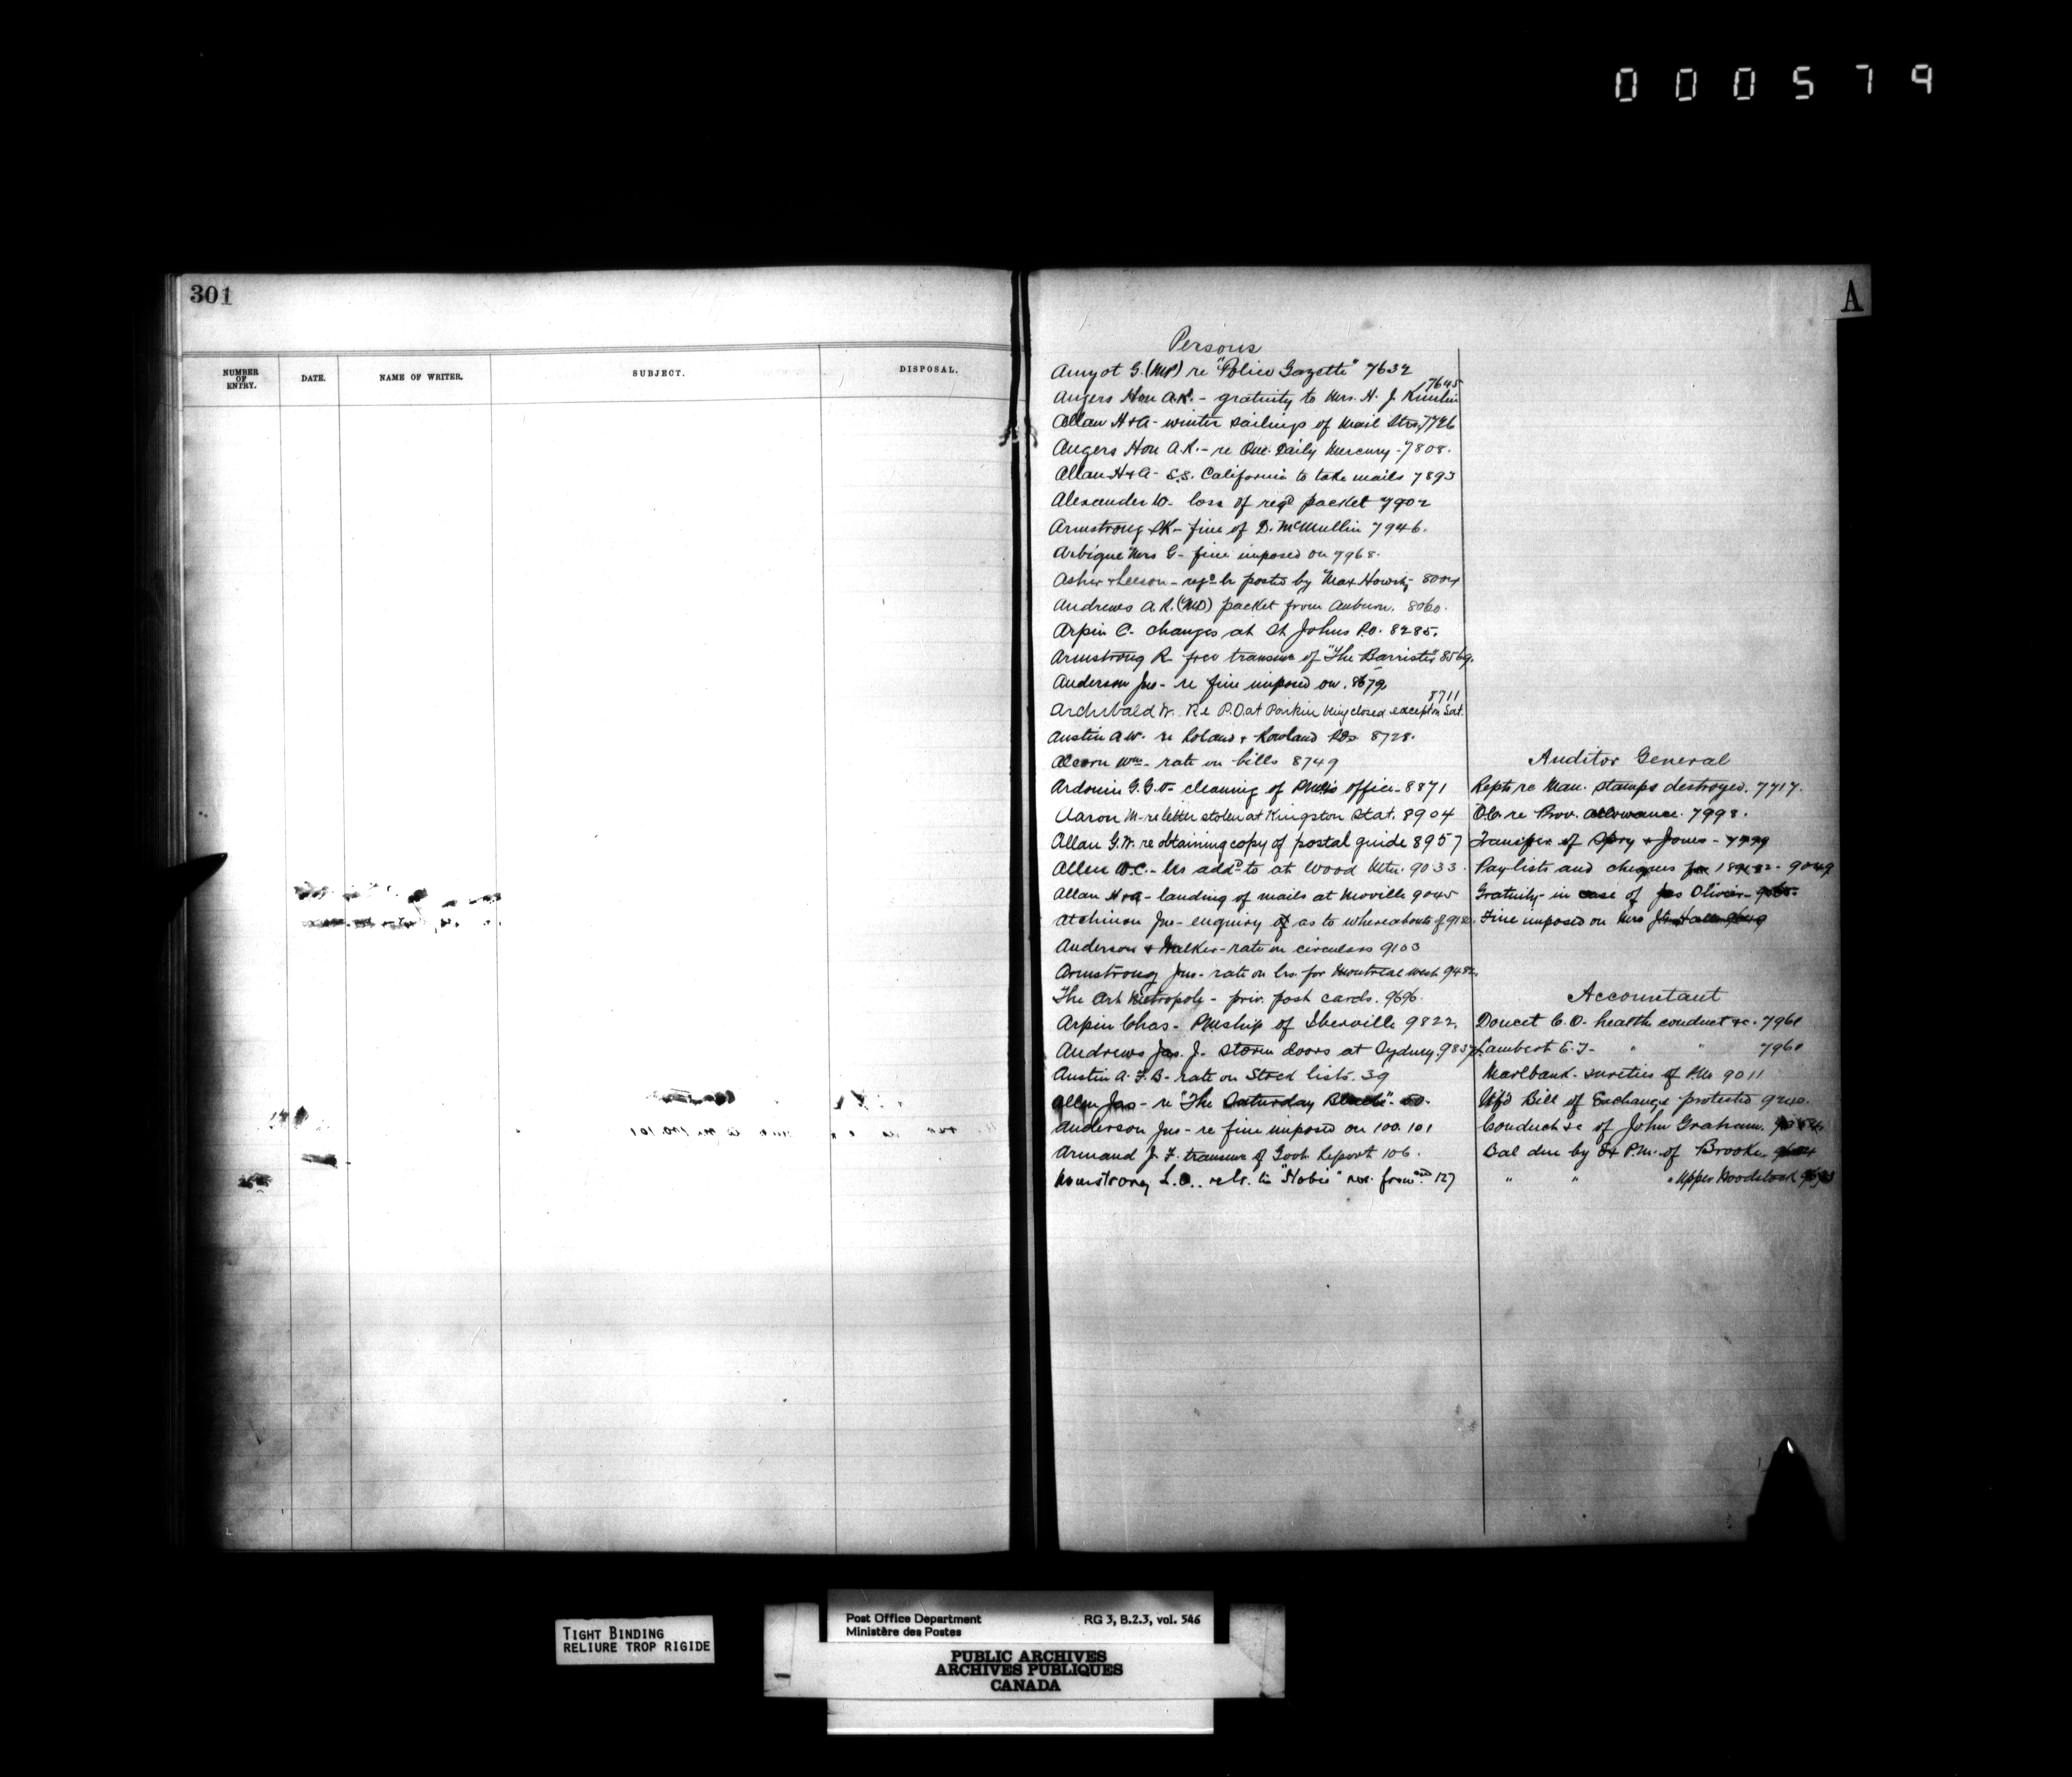 000579
301
NUMBER OF ENTRY.
DATE.
NAME OF WRITER.
SUBJECT.
DISPOSAL.
A
Persons
Amyot G. (MP) re "Police Gazette" 7632
Angers Hon A.R. - gratuity to Mrs. H. J. 7645
Allan H & A - winter sailings of Mail Strs. 7726
Angers Hon A.R. - re Que. Daily Mercury - 7808.
Allan H & A - S.S. California to take mails 7893
Alexander W. loss of regd packet 7902
Armstrong - fine of D. McMullin 7946.
Arbique Mrs G - fine imposed on 7968.
Asher & Leeson - regd lr posted by Max 8004
Andrews A.R. (MD) packet from Auburn. 8060.
Arpin C. changes at St Johns P.O. 8285.
Armstrong R. free transmn of "The Barrister" 8569.
Anderson Jno - re fine imposed on. 8679
Archibald W. Re P.O. at being closed except on Sat. 8711
Austin A.W. re Roland & Rowland POs 8728.
Alcorn Wm - rate on bills 8749
Ardouin G.G.O - cleaning of office - 8871
Aaron M - re letter stolen at Kingston Stat. 8904
Allan G.W. re obtaining copy of postal guide 8957
Allen D.C. - lrs addd to at Wood 9033.
Allan H & A - landing of mails at Moville 9045
Atchinson Jno - enquiry as to whereabouts of
Anderson & Walker - rate on circulars 9103
Armstrong Jno - rate on lrs. for Montreal West 9482.
The Art Metropole - priv. post cards. 9696.
Arpin Chas - PMship of Iberville 9822.
Andrews Jas. J. Storm doors at Sydney. 9837
Austin A.F.B - rate on Stock lists. 39
Allen Jas - re "The Saturday
Anderson Jno - re fine imposed on 100. 101
Armand J. F. transmn of Govt. Report 106.
Armstrong L.O. 127
Auditor General
Repts re Man. stamps destroyed. 7717.
Ob. re Prov. allowance. 7998.
Transfer of Spry & Jones -
Paylists and cheques 9049
Gratuity in case of Jas Olivier
Fine imposed on Mrs
Accountant
Doucet C.O. health conduct &c. 7960
Lambert E.J. - " " 7960
Marlbank. sureties of P.M. 9011
Bill of Exchange protested
Conduct &c of John Graham.
Bal due by Ex P.M. of Brooke
" " " Upper Woodstock
TIGHT BINDING
RELIURE TROP RIGIDE
Post Office Department
Ministère des Postes
RG 3, B.2.3, vol. 546
PUBLIC ARCHIVES
ARCHIVES PUBLIQUES
CANADA